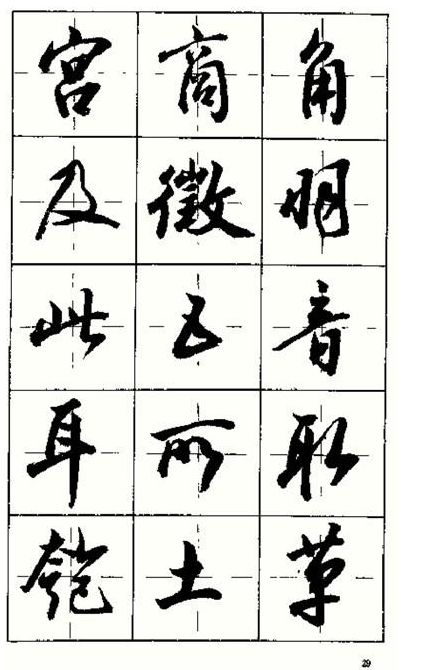 宫商角
及徵羽
此五音
耳所取
匏土革
29